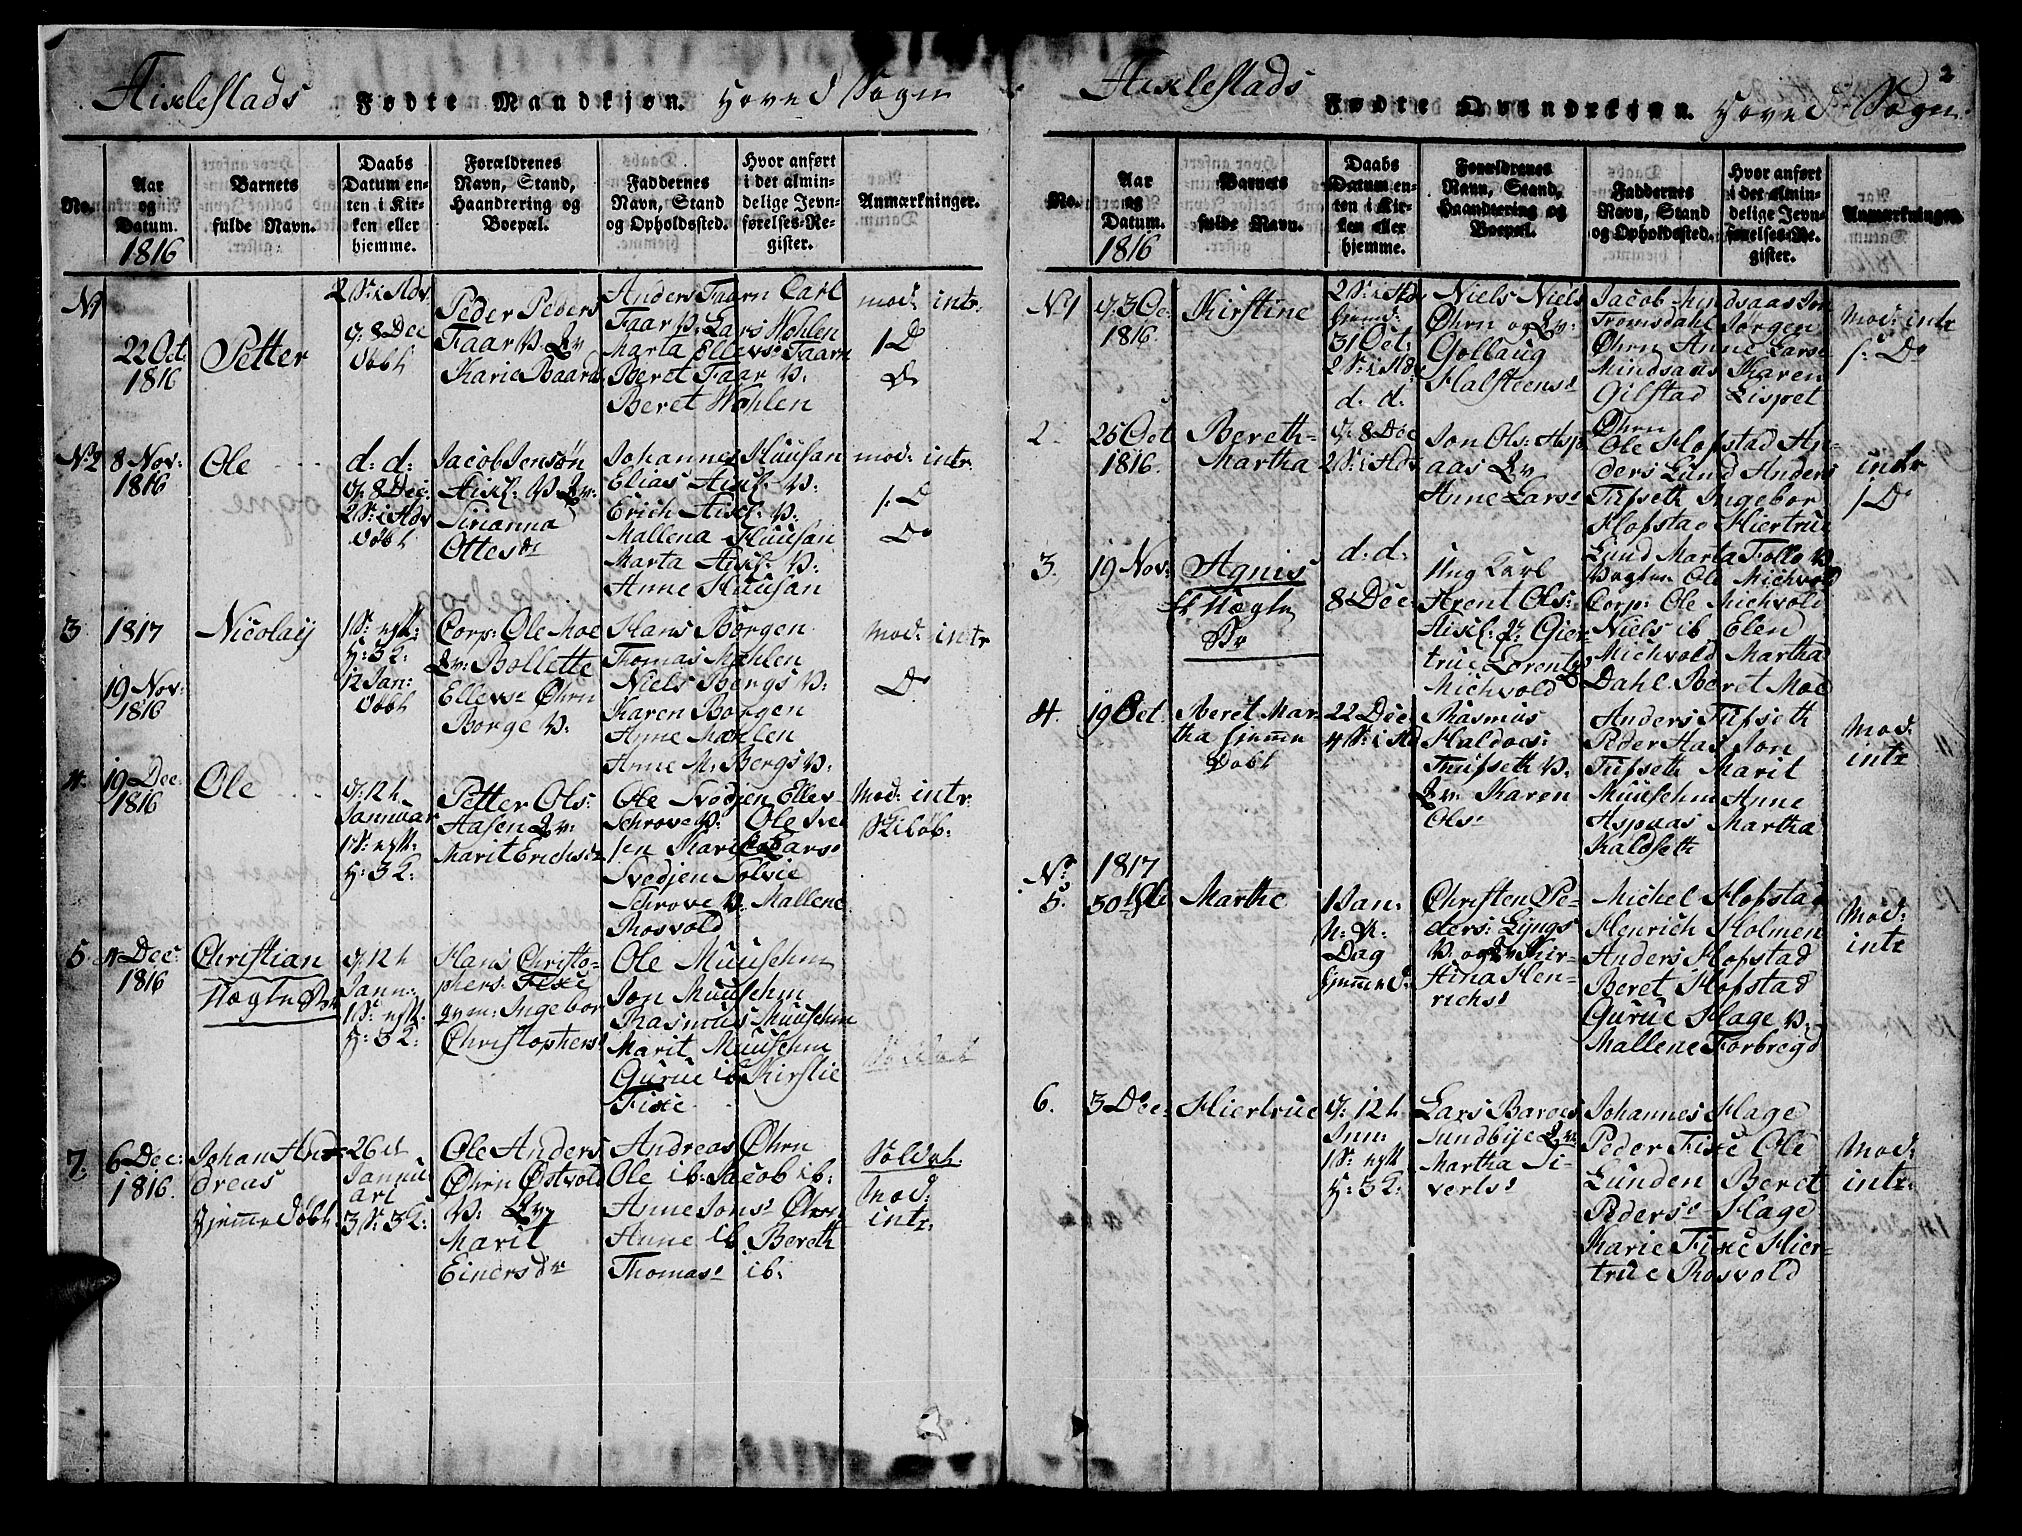 Aixlestads Fødte Mandkjøn. Hoved Sogn
No.
Aar
og
Datum.
1816
Barnets
fulde Navn.
Daabs
Datum en-
ten i Kir-
ken eller
hjemme.
Forældrenes
Navn, Stand,
Haandtering og
Boepæl.
Faddernes
Navn, Stand
og Opholdssted.
Hvor anført
i det almin-
delige Jevn-
førelses-Re-
gister.
Anmærkninger.
N1
22 Oct
1816
Petter
2 S: i Adv
8 Dec
døbt
Peder Peders
Faar
Karie Baards
Anders Faarn Carl
Faar V: Lars Wohlen
Marta Ellevs: Faarn
Beret Faar V:
Beret Wohlen
mod: intr
1 D
D
N2
8 Nov:
1816
Ole
d: d:
8 Dec:
2 S: i Adv
døbt
Jacob Jensøn
Aixl: V: Qv:
Sirianna
Ottesdr
Johannes Huusan
Elias Aixl: V:
Erich Aixl: V:
Mallena Huusan
Marta Aixl: V:
Anne Huusan
mod: intr
1: D
Do
3
1817
19 Nov:
1816
Nicolaij
1 S: nytt:
H: 3 K:
12 Jan:
døbt
Corp: Ole Moe
Qv: Bollette
Ellevs Øhrn
Borge V:
Hans Borgen
Thomas Mahlen
Niels Bergs V:
Karen Borgen
Anne Mahlen
Anne M: Bergs V:
Mod: intr
Do
4.
19 Dec:
1816
Ole
12 t
Januar
1 S: nytt:
H: 3 K:
Petter Ols:
Aasen Qv:
Marit Erichsdr
Ole Svedjen Ellev
Schrove V: Ole Sve
jen Marit Lars:
Svedjen Solvie
Schrove V: Mallene
Rosvold
Mod: intr:
5
4 Dec:
1816
Christian
Uægte
12 t
Jann:
1 S: nytt.
H: 3 K:
Hans Christo-
phers: Fixe
qven: Ingebor
Christophers:
Ole Muusehm
Jon Muusehm
Rasmus Muusehm
Marit Muusehm
Gurue ib Kirstie
Fixe
7.
6 Dec:
1816.
Johan And
dreas
hjemme døbt
26 d
Januu
ari
3 S: 3 K:
Ole Anders
Øhrn Østvold
V: Qv
Marit
Einersdr
Andreas Øhrn
Ole ib: Jacob ib:
Anne Jons: Øhrn
Anne ib Bereth
Thomas: ib:
Soldat.
Mod:
intr:
Aixlestads Fødte Qvindekjøn. Hoved Sogn
2
No.
Aar
og
Datum.
1816
Barnets
fulde Navn.
Daabs
Datum en-
ten i Kir-
ken eller
hjemme.
Forældrenes
Navn, Stand,
Haandtering og
Boepæl.
Faddernes
Navn, Stand
og Opholdssted.
Hvor anført
i det almin-
delige Jevn-
førelses-Re-
gister.
Anmærkninger.
N1
3 Oc:
1816.
Kirstine
2 S: i Adv
31 Oct:
2 S: i Adv
Niels Niels
Øhrn og Qv:
Gollaug
Halsteens:
Jacob Mindsaas Jon
Tromsdahl Jørgen
Øhrn Anne Larse
Mindsaas Karen
Gilstad Lispet
Øhrn
Mod: intr
1: Do
2.
25 Oct
1816.
Bereth-
Martha
d: d:
8 Dec
2 S: i Adv
Jon Ols: Asp
aas Qv
Anne Lars:
Ole Hofstad An-
ders Lund Anders
Tufseth Ingebor
Hofstad Hiertrue
Lund
intr
1 Do
3.
19 Nov:
Agnis
Uægte
d: d:
8 Dec:
Ung Karl
Arent Ols:
Aixl: Gier
true Lorentz
Michvold
Marta Follo
Ole Michvold
Corp: Ole Michvold
Niels ib Elen
Michvold Martha
Dahl Beret Moe
4.
19 Oct.
Beret Mar-
tha hjemme
døbt
22 Dec
4 S: i Ad
Rasmus
Haldoes:
Tuufseth V:
Qv: Karen
Ols:
Anders Tufseth
Peder Aas Jon
Tufseth Marit
Muusehm Anne
Aspaas Martha
Kaldseth
Mod:
intr
N:
5.
1817
30
Marthe
1 Jan:
Dag
hjemme d:
Christen Pe-
ders: Lyngs
V: og Qv Kir-
stina Hen-
richs:
Michel Hofstad
Henrich Holmen
Anders Hofstad
Beret Hofstad
Gurue Hage V:
Mallene Forbregd
Mod:
intr
6.
3 Dec:
Hiertrue
12 t
Jnn:
1 S: nytt
H: 3 K:
Lars Baroes
Sundbye Qv:
Martha Si-
verts:
Johannes Hage
Peder Fixe Ole
Lunden Beret
Peders: Hage
Karie Fixe Hier-
true Rosvold
Mod:
intr: